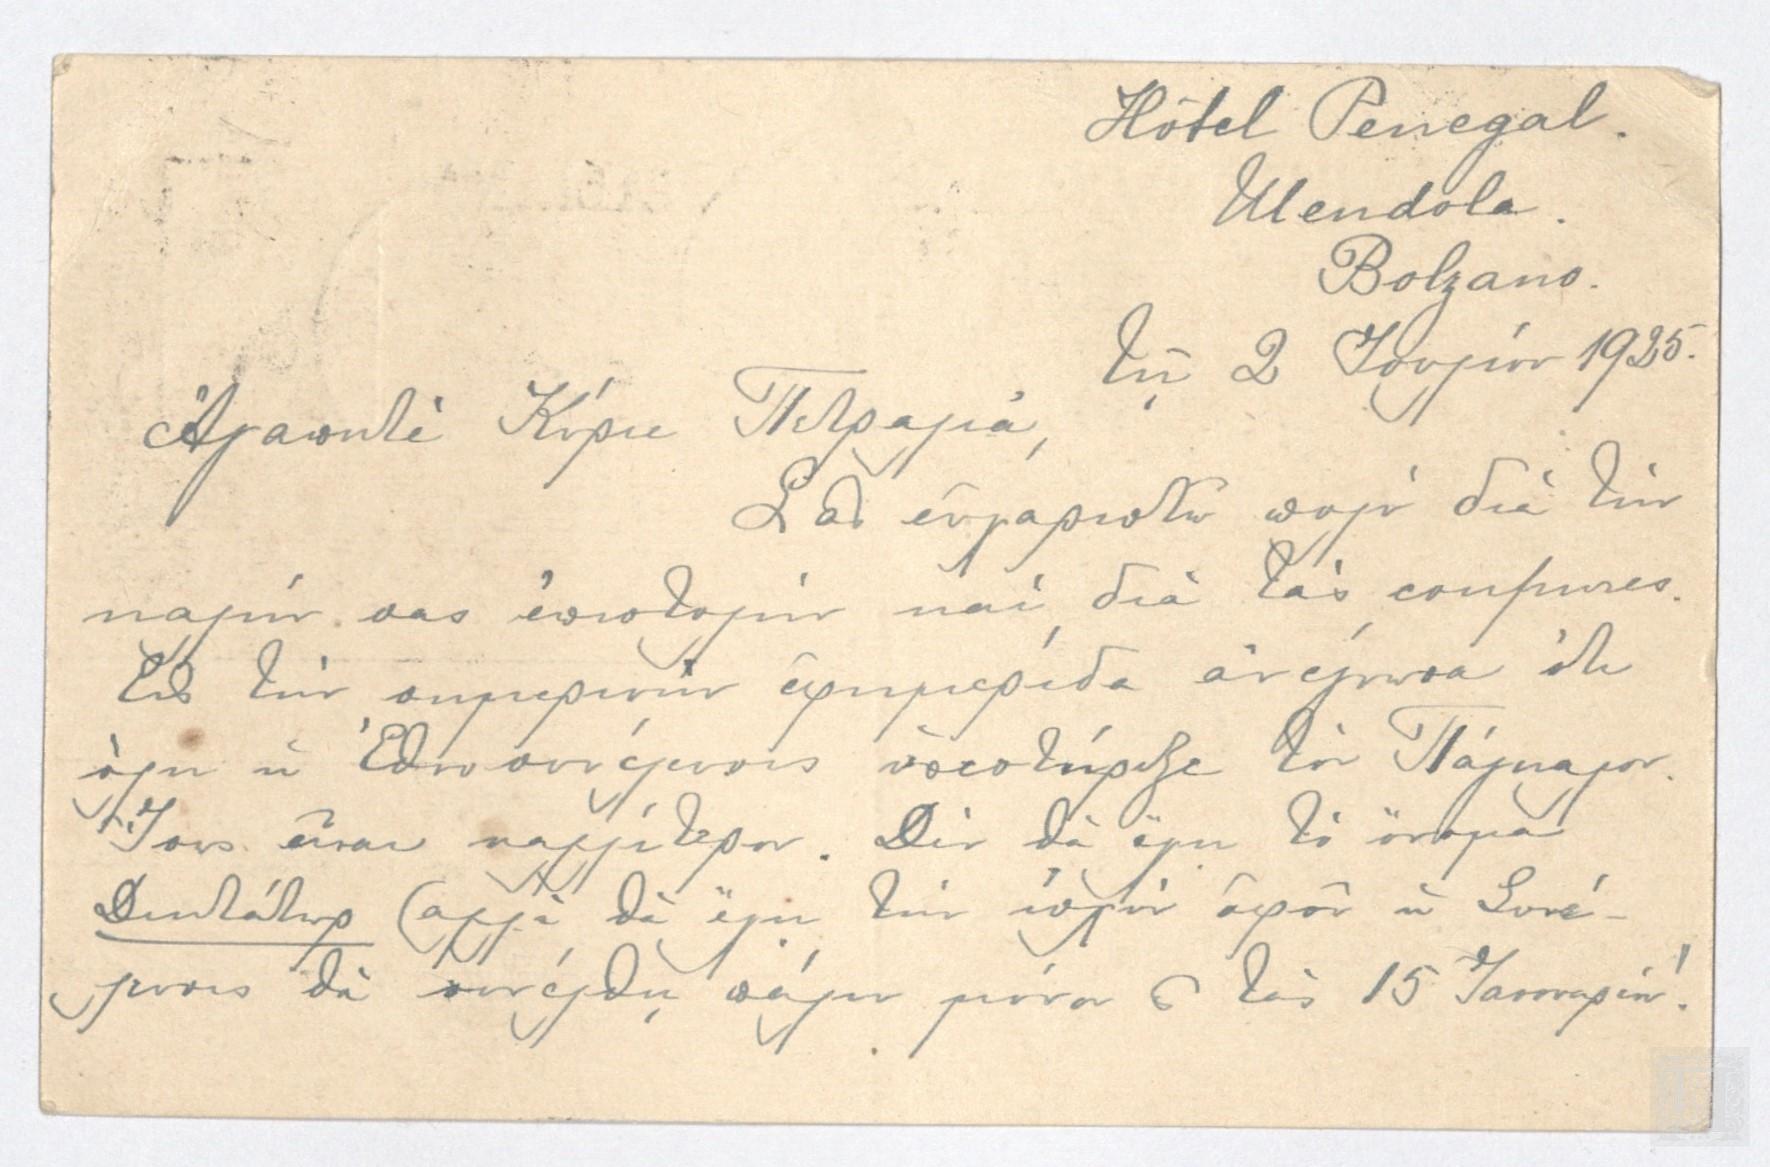 Hôtel Penegal.
Mendola.
Bolzano.
τῇ 2 Ἰουλίου 1925.
Ἀγαπητὲ Κύριε Πετραλιᾶ,
Σᾶς εὐχαριστῶ πολὺ διὰ τὴν
καλήν σας ἐπιστολὴν καὶ διὰ τὰς coupures.
Εἰς τὴν σημερινὴν ἐφημερίδα ἀνέγνωσα ὅτι
ὅλη ἡ Ἐθνοσυνέλευσις ὑπεστήριξε τὸν Πάγκαλον.
Ἴσως εἶναι καλλίτερον. Δὲν θὰ ἔχῃ τὸ ὄνομα
Δικτάτωρ (ἀλλὰ θὰ ἔχῃ τὴν ἰσχὺν ἀφοῦ ἡ Συνέ-
λευσις θὰ συνέλθῃ πάλιν μόνον εἰς τὰς 15 Ἰανουαρίου!